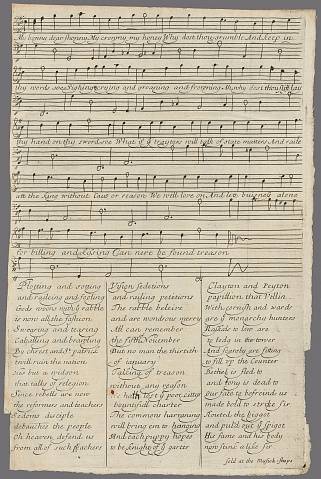 My bonny dear Shonny, My cronny my honey Why dost thou grumble And keep in
thy words soe Sighing crying and groaning and frowning Ah why dost thou lay
thy hand on thy sword soe What if ye traytors will talk of state matters And raile
att the King without Caus or reason We will love on And let buisnes alone
for billing and kissing Can nere be found treason
Plotting and soting
and raileing and fooling
Gods woons with ye rabble
is now all the fashion
Swearing and tearing
Caballing and brawling
By christ and St patrick
twill ruin the nation
but a widson
that talks of relegion
Since rebells are now
the reformers and teachers
disciple
debauches the people
Oh heaven defend us
from all of such preachers
Vision seditions
and railing petitions
The rabble beleive
and are wondrous merry
All can remember
the fifth November
But no man the thirtieth
of january
Talking of treason
without any reason
hath lost ye poor sitty
bountifull charter
The commons haranging
will bring em to hanging
And each puppy hopes
to be knight of ye garter
Clayton and Peyton
papillion that
With cornish and wards
gre ye monarchy hunters
low are
to ledg in the tower
And are fitting
to fill up the Counter
Bethel is fled to
and long is dead to
our fate to befreinds us
made bold to strike sir
Routed the biggot
and puld out ye spigot
His fame and his body
now stinc alike sir
Sold at the Musick shops